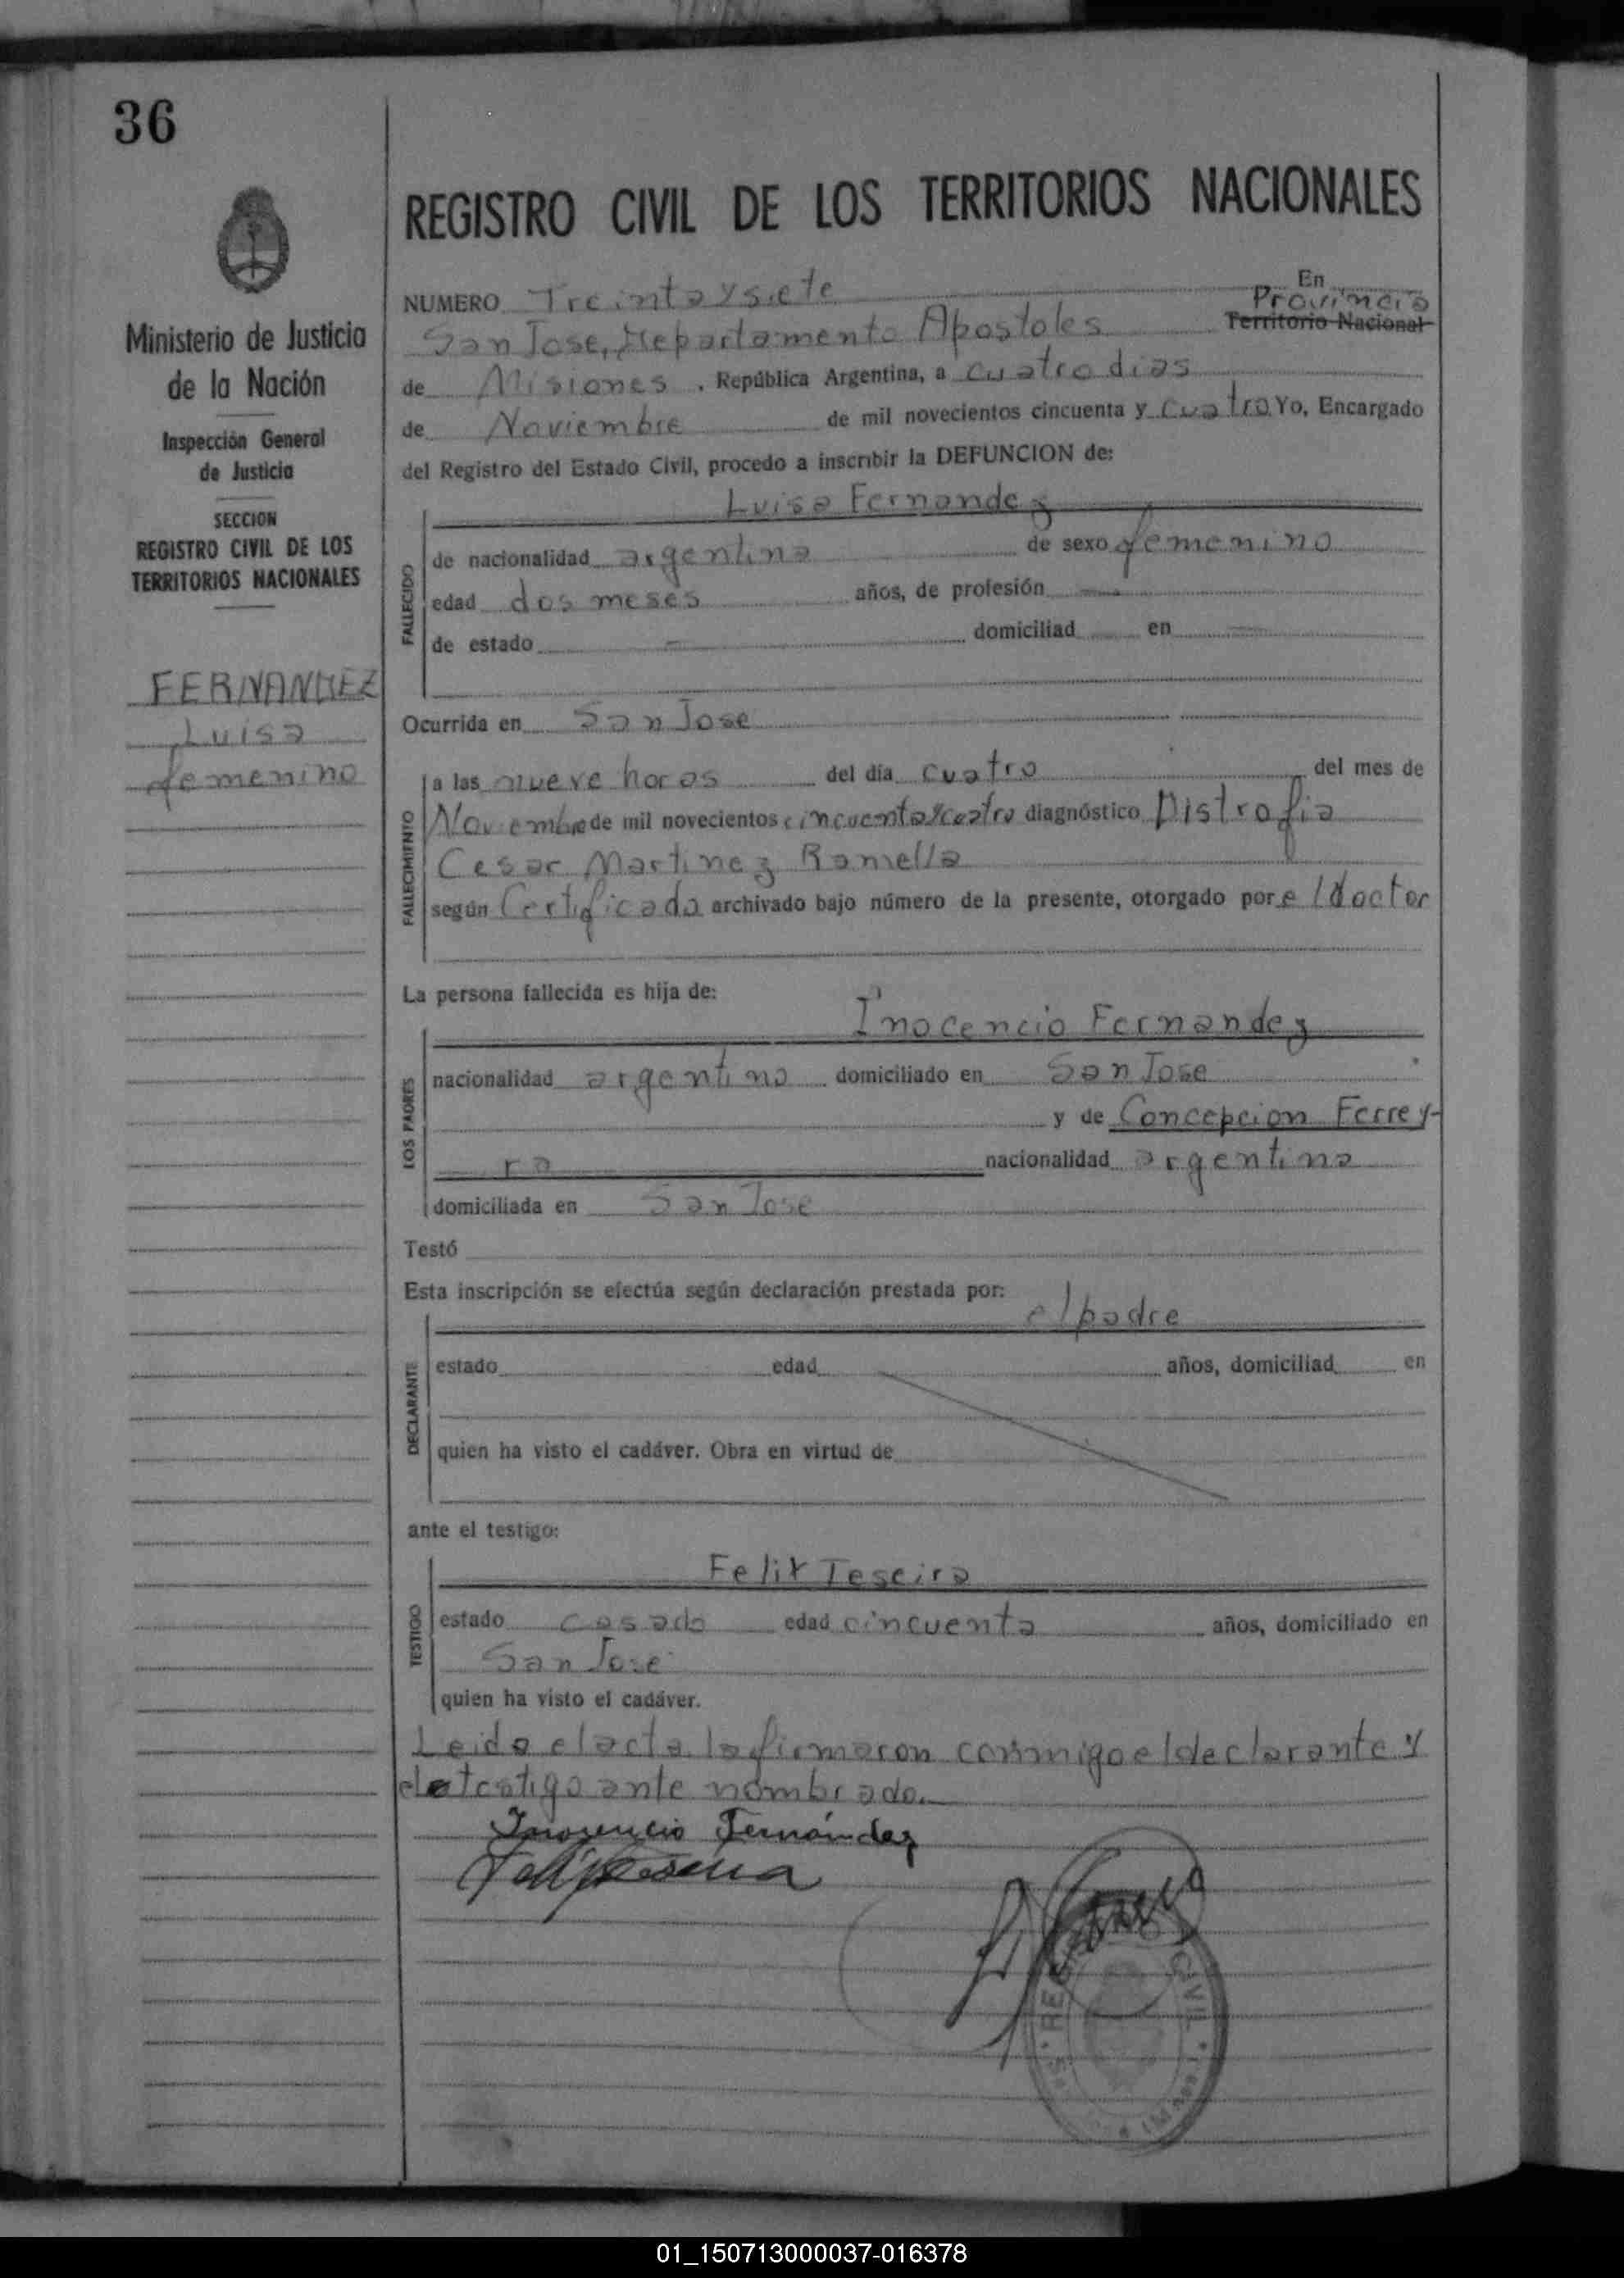 36
Ministerio de Justicia
de la Nación
Inspección General
de Justicia
SECCION
REGISTRO CIVIL DE LOS
TERRITORIOS NACIONALES
FERNANDEZ
Luisa
femenino
REGISTRO CIVIL DE LOS TERRITORIOS NACIONALES
NUMERO Treinta y siete En
Provincia
San Jose, Departamento Apostoles Territorio Nacional
de Misiones , República Argentina, a cuatro dias
de Noviembre de mil novecientos cincuenta y cuatro Yo, Encargado
del Registro del Estado Civil, procedo a inscribir la DEFUNCION de:
Luisa Fernandez
FALLECIDO
de nacionalidad argentina de sexo femenino
edad dos meses años, de profesión —
de estado — domiciliad en —
Ocurrida en San Jose
FALLECIMIENTO
a las nueve horas del día cuatro del mes de
Noviembre de mil novecientos cincuenta y cuatro diagnóstico Distrofia
Cesar Martinez Ramella
según Certificado archivado bajo número de la presente, otorgado por el doctor
La persona fallecida es hija de:
Inocencio Fernandez
LOS PADRES
nacionalidad argentino domiciliado en San Jose
y de Concepcion Ferrey-
ra nacionalidad argentina
domiciliada en San Jose
Testó
Esta inscripción se efectúa según declaración prestada por:
el padre
DECLARANTE
estado edad años, domiciliad en
quien ha visto el cadáver. Obra en virtud de
ante el testigo:
Felix Teseira
TESTIGO
estado casado edad cincuenta años, domiciliado en
San Jose
quien ha visto el cadáver.
Leida el acta la firmaron conmigo el declarante y
el testigo ante nombrado.
Inosencio Fernández
REGISTRO CIVIL
01_150713000037-016378